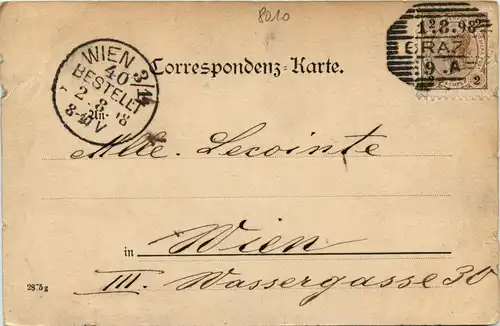 8010
12.8.98
GRAZ
9.A
2
WIEN 3/1
40
BESTELLT
2 8 98
8-  V
Correspondenz-Karte.
An
Mlle. Lecointe
in Wien
III. Wassergasse 30